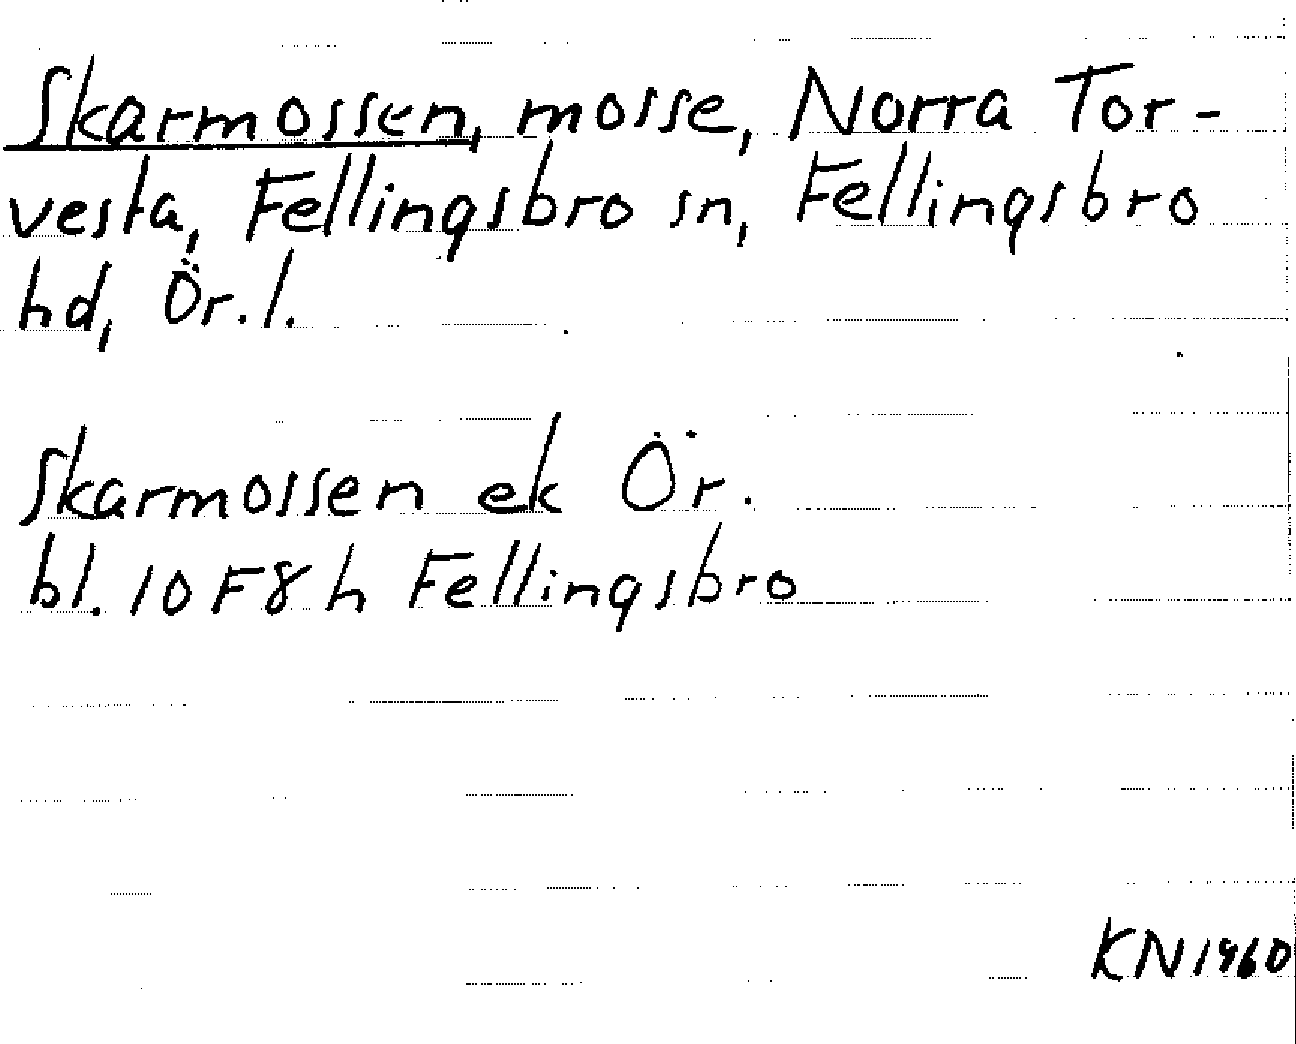 Skarmossen, mosse, Norra Tor-
vesta, Fellingsbro sn, Fellingsbro
hd, Ör. l.
Skarmossen ek Ör.
bl. 10F8h Fellingsbro
KN1960